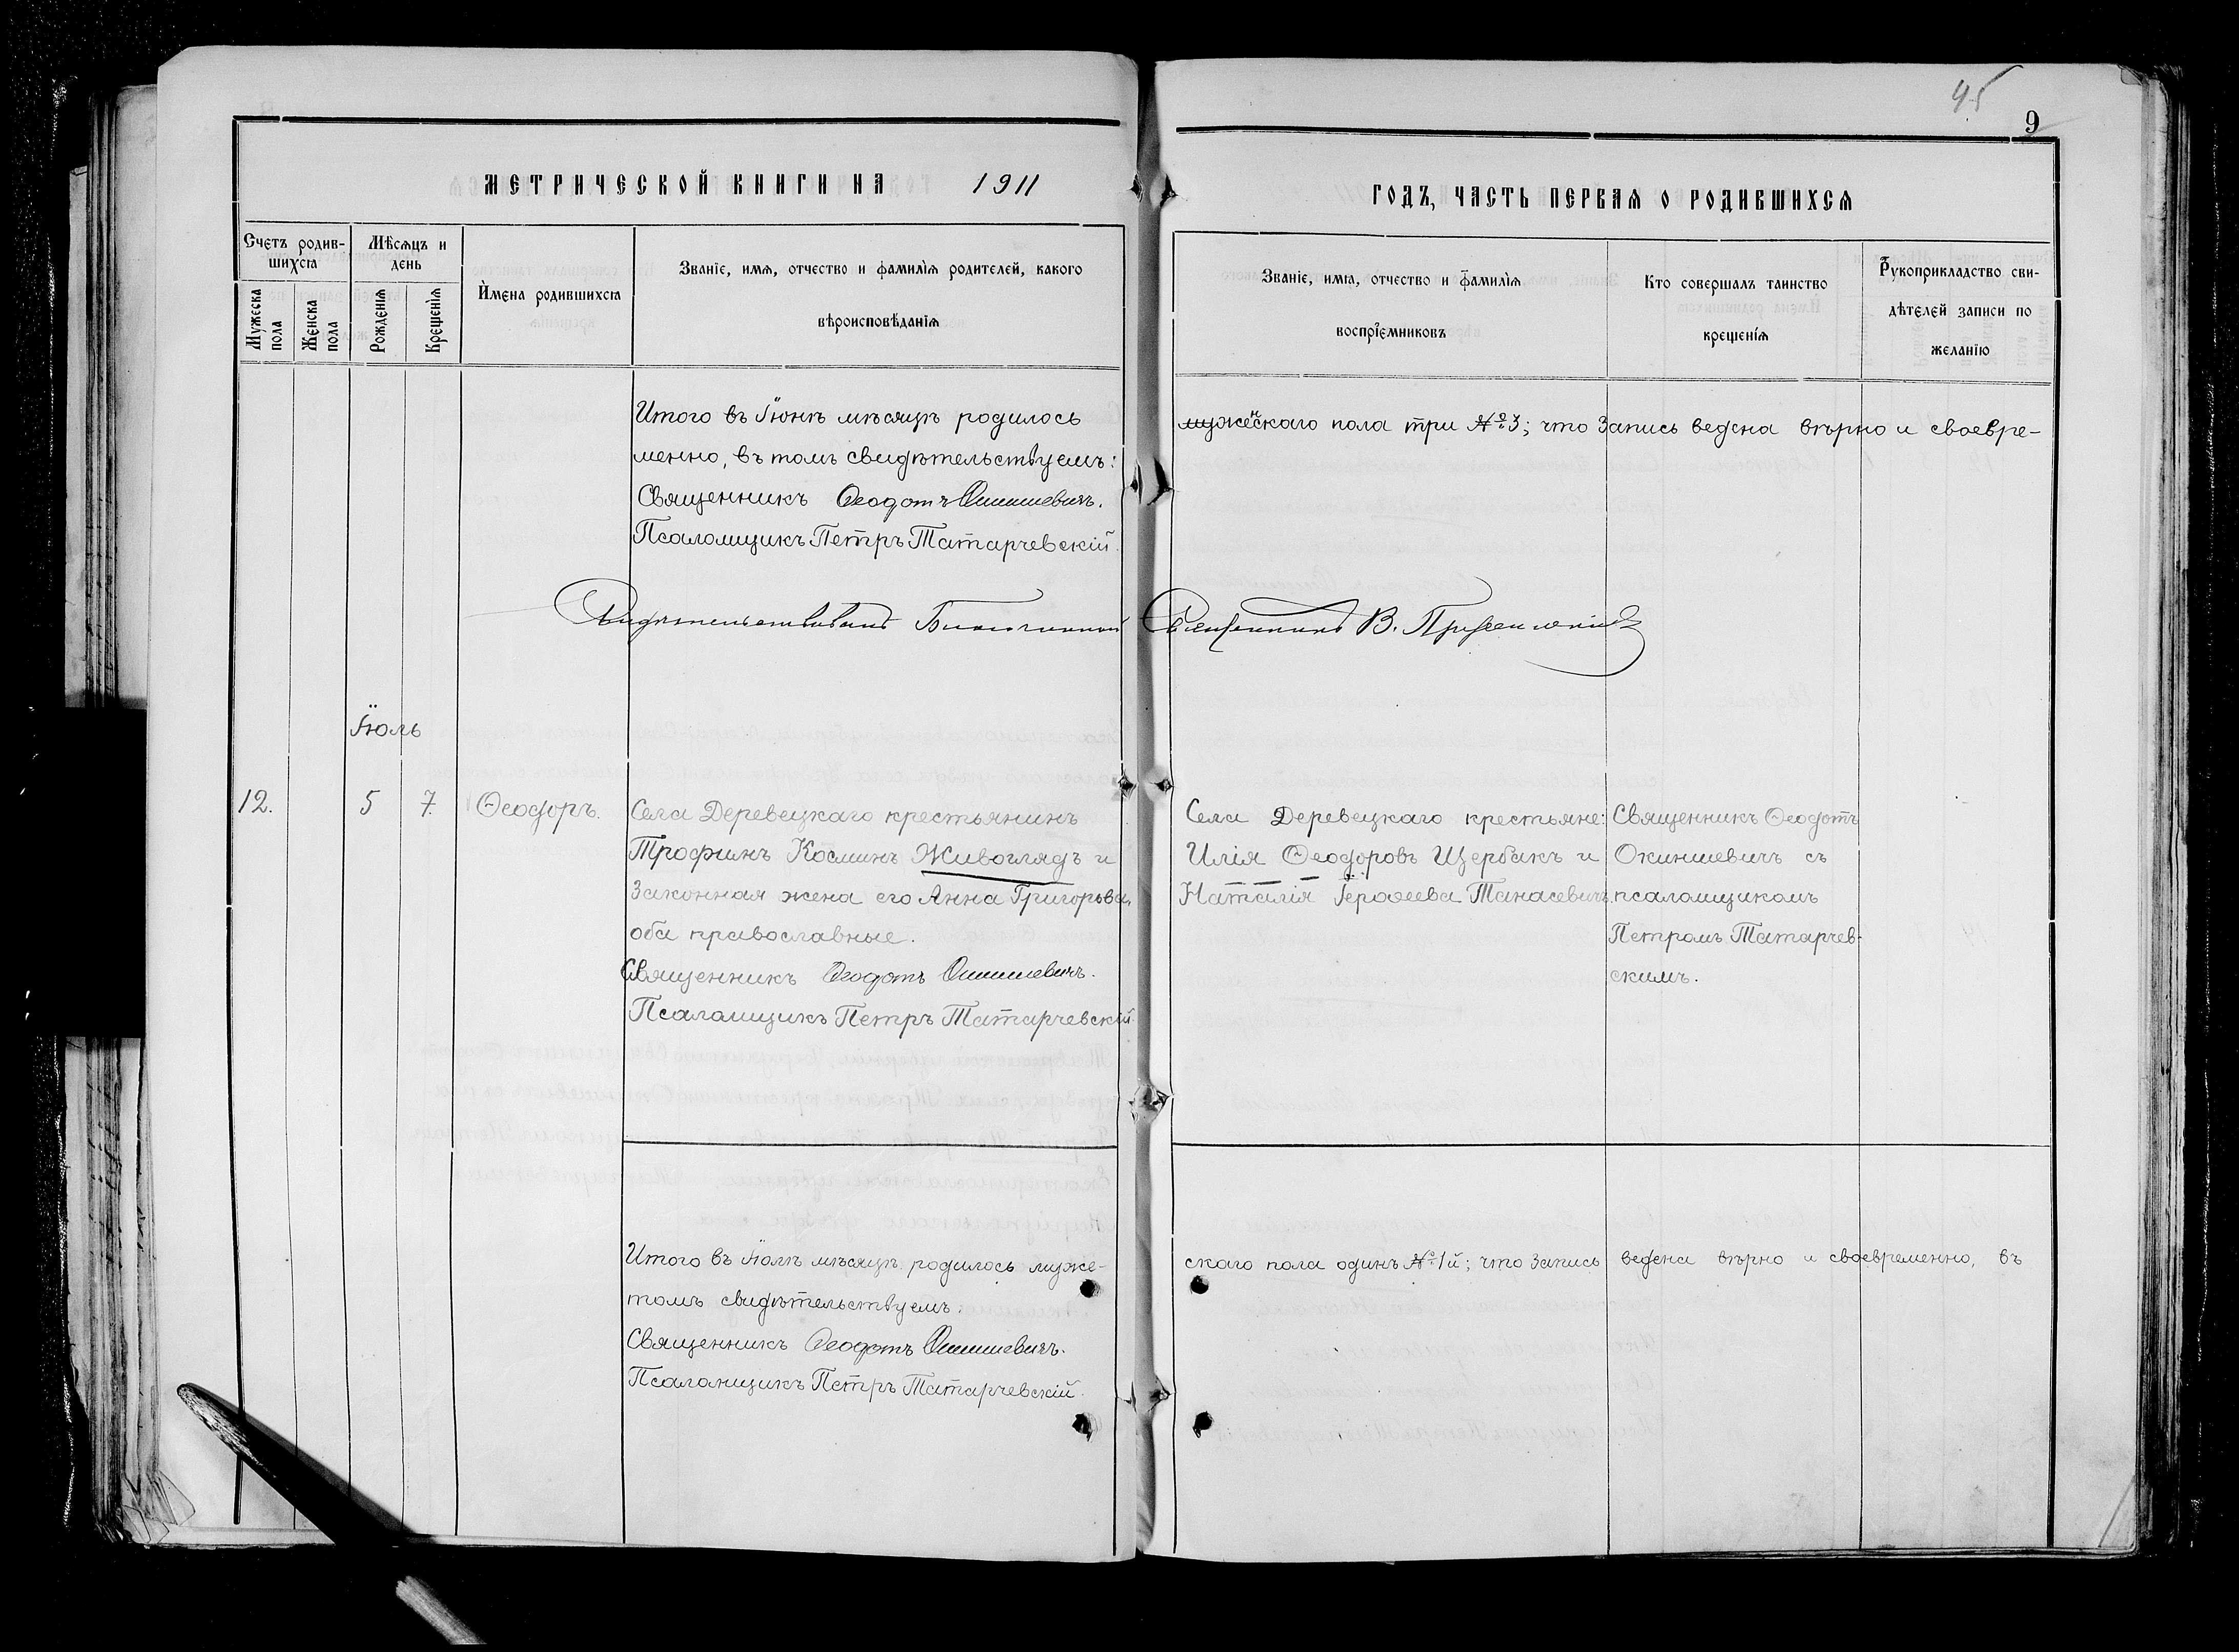 45
9
МЕТРИЧЕСКОЙ КНИГИ НА 1911
ГОДЪ, ЧАСТЬ ПЕРВАЯ О РОДИВШИХСЯ
Счетъ родив-
шихся
Мужеска
пола
Женска
пола
Мѣсяцъ и
день
Рожденія
Крещенія
Имена родившихся
Званіе, имя, отчество и фамилія родителей, какого
вѣроисповѣданія
Званіе, имя, отчество и фамилія
воспріемниковъ
Кто совершалъ таинство
крещенія
Рукоприкладство сви-
дѣтелей записи по
желанію
Итого въ Іюнѣ мѣсяцѣ родилось
женскаго пола три №3; что запись ведена вѣрно и своевре-
менно, въ томъ свидѣтельствуемъ:
Священникъ Ѳеодотъ Окиншевичъ.
Псаломщикъ Петръ Татарчевскій.
Свидѣтельствовалъ Благочинный Священникъ В.
Іюль
12.
5
7.
Ѳеодоръ.
Села Деревецкаго крестьянинъ
Трофимъ Косминъ Живоглядъ и
законная жена его Анна Григорьева,
оба православные.
Священникъ Ѳеодотъ Окиншевичъ.
Псаломщикъ Петръ Татарчевскій.
Села Деревецкаго крестьяне:
Илія Ѳеодоровъ Щербакъ и
Наталія Іероѳеева Танасевичъ.
Священникъ Ѳеодотъ
Окиншевичъ съ
псаломщикомъ
Петромъ Татарчев-
скимъ.
Итого въ Іюлѣ мѣсяцѣ родилось муже-
скаго пола одинъ №1й; что запись ведена вѣрно и своевременно, въ
томъ свидѣтельствуемъ:
Священникъ Ѳеодотъ Окиншевичъ.
Псаломщикъ Петръ Татарчевскій.